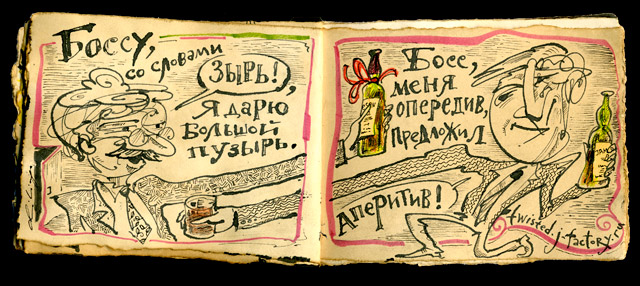 Боссу,
со словами
Зырь!,
я дарю
большой
пузырь.
Босс,
меня
опередив,
предложил
Аперитив!
twisted-j-factory.ru